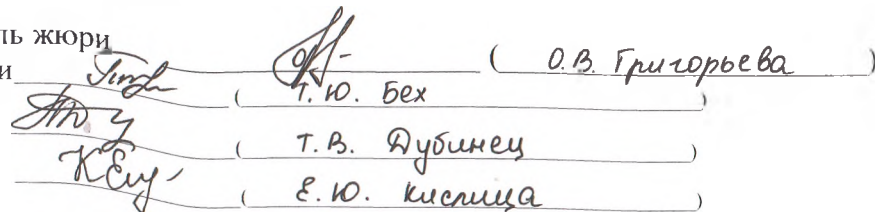 ль жюри ( О.В. Григорьева )
и ( Т.Ю. Бех )
( Т.В. Дубинец )
( Е.Ю. Кислица )